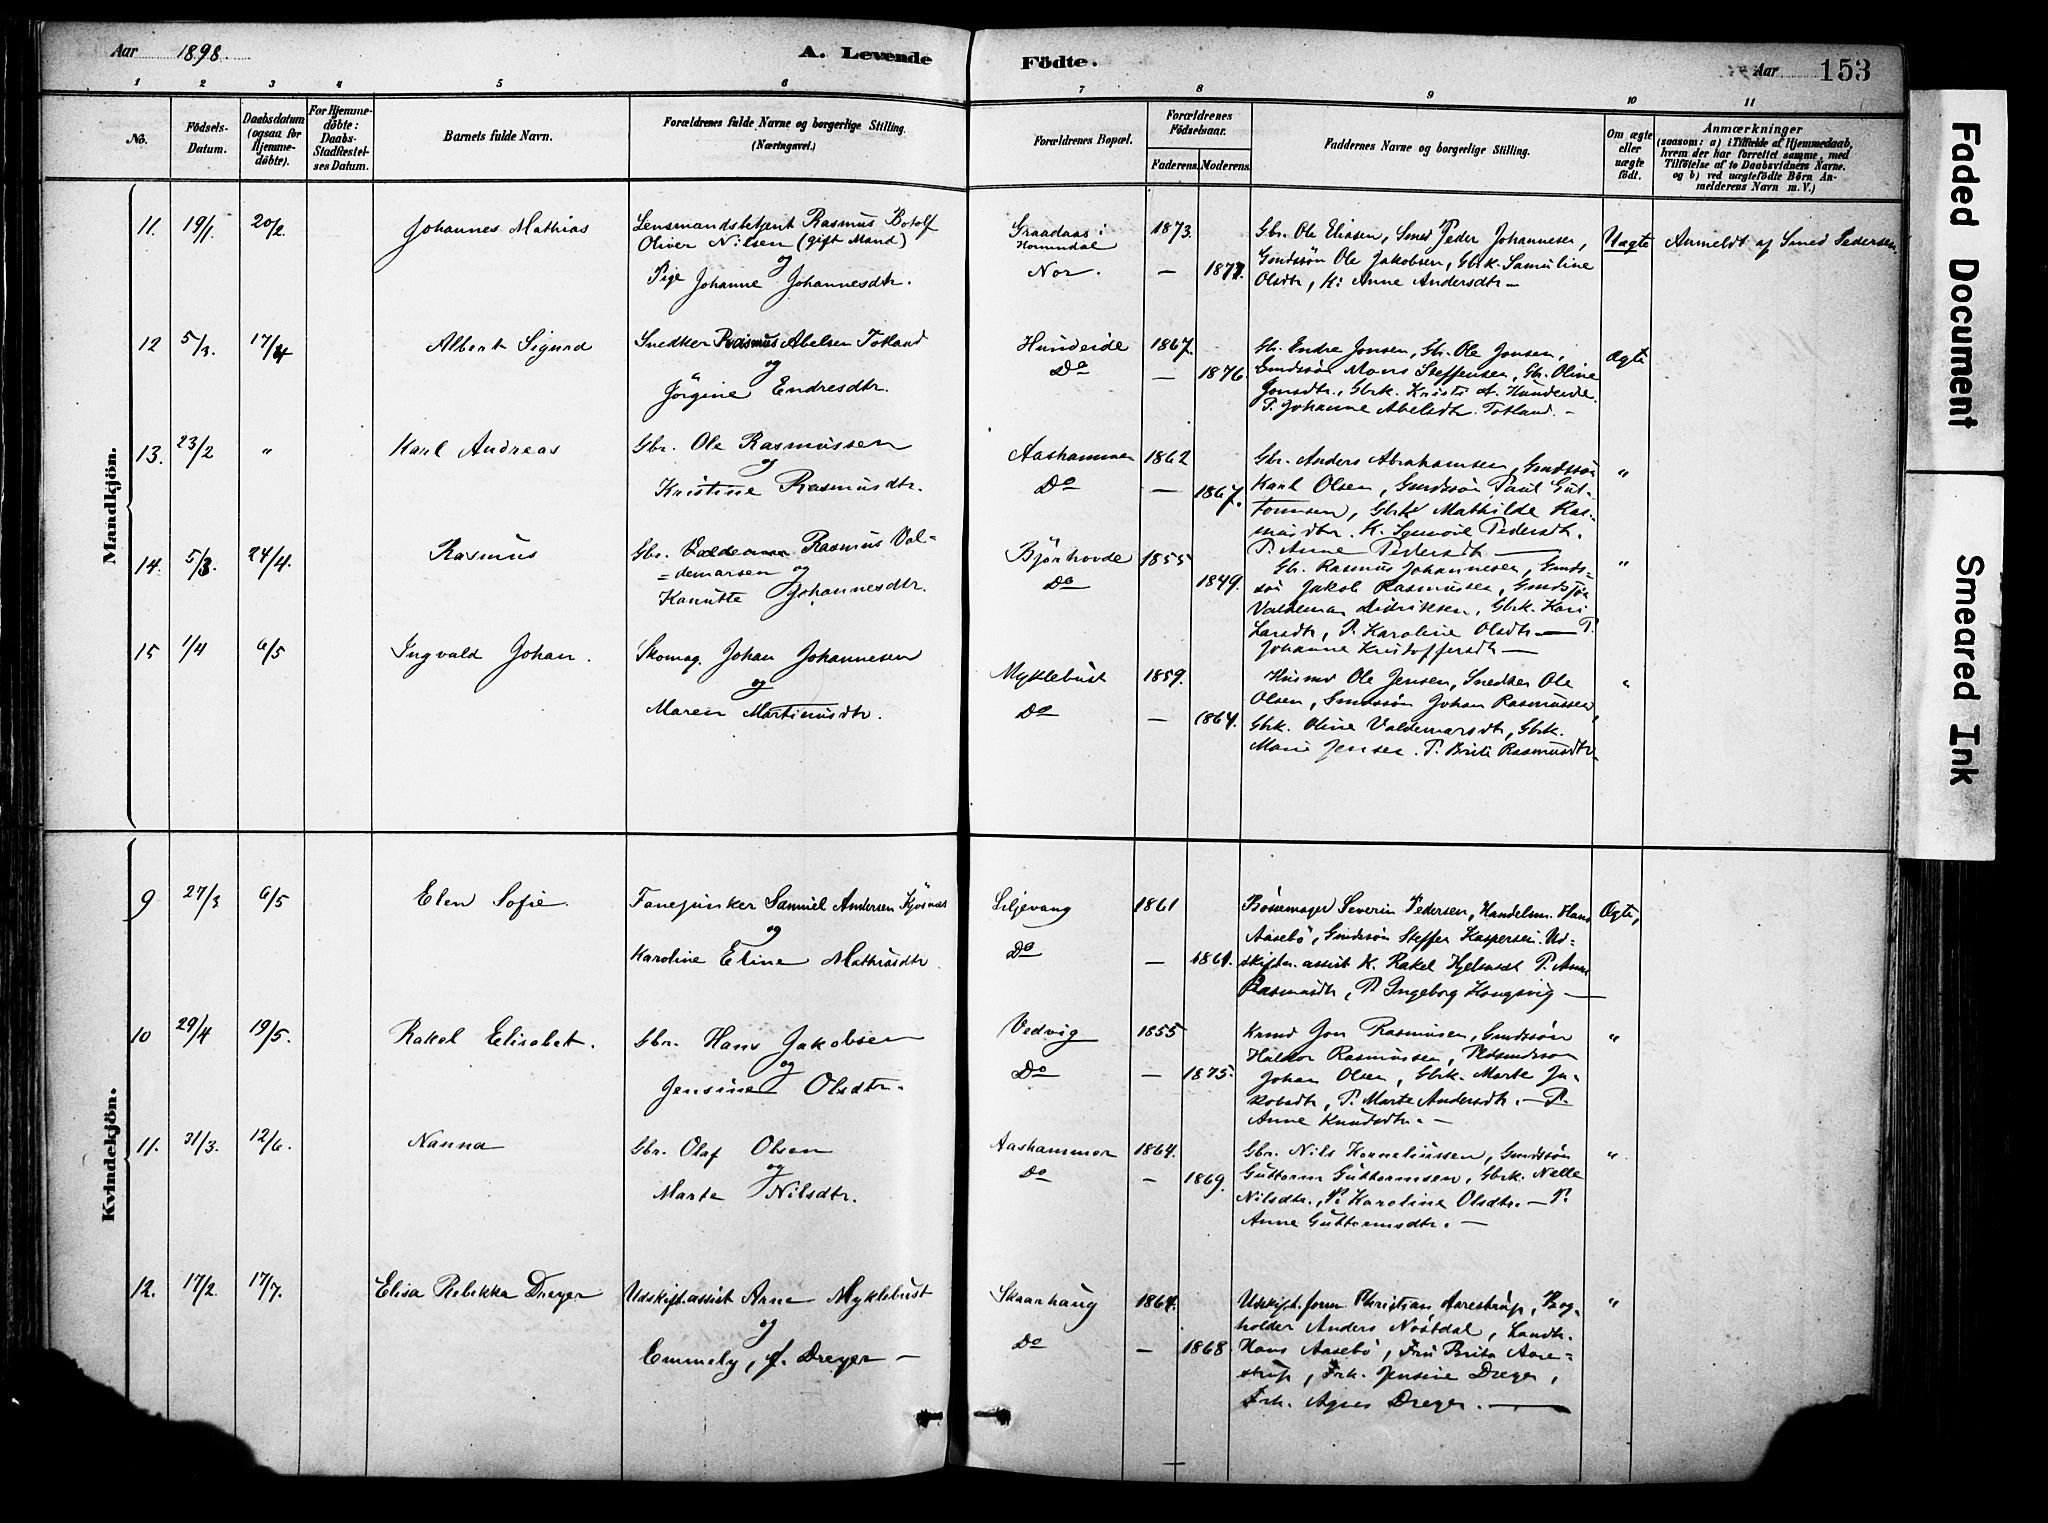 Aar 1898. A. Levende Födte. Aar 153
1 2 3 4 5 6 7 8 9 10 11
No. Födsels-Datum. Daabsdatum (ogsaa for Hjemmedöbte). For Hjemmedöbte: Daabs-Stadfæstelses Datum. Barnets fulde Navn. Forældrenes fulde Navne og borgerlige Stilling. (Næringsvei.) Forældrenes Bopæl. Forældrenes Födselsaar. Faderens. Moderens. Faddernes Navne og borgerlige Stilling. Om ægte eller uægte födt. Anmærkninger
(saasom: a) i Tilfælde af Hjemmedaab,
hvem der har forrettet samme, med
Tilföielse af to Daabsvidners Navne.
og b) ved uægtefödte Börn Anmelderens Navn m. V.)
Mandkjön.
11. 19/1. 20/2. Johannes Mathias Lensmandsbetjent Rasmus Botolf Graadaas i 1873. Gbr. Ole Eliasen, Smed Peder Johannesen, Uægte Anmeldt af Smed Pedersen.
Oliver Nilsen (gift Mand) Hornindal
og Nor. — 1877. Gmdssön Ole Jakobsen, Gbrk. Samuline
Pige Johanne Johannesdtr. Olsdtr, K. Anne Andersdtr —
12 5/3. 17/4 Albert Sigurd Snedker Rasmus Abelsen Totland Hundeide 1867. Gbr. Endre Jonsen, Gbr. Ole Jonsen, Ægte
og Do — 1876 Gmdssön Mons Steffensen, Gbr. Oline
Jörgine Endresdtr. Jonsdtr., Gbrk. Kristi A. Hundeide.
P. Johanne Abelsdtr. Totland. —
13. 23/2 " Karl Andreas Gbr. Ole Rasmussen Aashammer 1862 Gbr. Anders Abrahamsen, Gmdssön "
og Do — 1867. Karl Olsen, Gmdssön Paul Gut-
Kristine Rasmusdtr. tormsen, Gbrk Mathilde Ras-
musdtr. K. Synnöve Pedersdtr.
P. Anne Pedersdtr —
14. 5/3. 24/4. Rasmus Gbr. Rasmus Val- Bjørhovde 1855 Gbr. Rasmus Johannesen, Gmds- "
=demarsen og Do 1849. sön Jakob Rasmussen, Gmdssön
Kanutte Johannesdtr. Valdemar Didriksen, Gbrk. Kari
Larsdtr, P. Karoline Olsdtr — P.
Johanne Kristoffersdtr —
15 1/4 6/5 Ingvald Johan. Skomag. Johan Johannesen Myklebust 1859. Husmd Ole Jensen, Snedker Ole "
og Do — 1864. Olsen, Gmdssön Johan Rasmussen
Maren Martinusdtr. Gbrk. Oline Valdemarsdtr, Gbrk.
Marie Jensen. P. Brite Rasmusdtr
Kvindekjön.
9 27/3 6/5 Elen Sofie. Fanejunker Samuel Andersen Kjösnæs Liljevang 1861 Bössemager Severin Pedersen, Handelsm. Hans Ægte,
og Do — 1861. Aasebö, Gmdssön Steffen Kaspersen. Ud-
Karoline Eline Mathiasdtr. skiftn. assist K. Rakel Hjelmset P. Anne
Rasmusdtr, P. Ingeborg Kongsvig —
10 29/4 19/5. Rakel Elisabet. Gbr. Hans Jakobsen Vedvig 1855 Krmd Jon Rasmusen, Gmdssön "
og Do — 1875. Haldor Rasmussen,
Jensine Olsdtr. Johan Olsen, Gbrk. Marte Ja-
kobsdtr, P. Marte Andersdtr. — P.
Anne Knudsdtr. —
11. 31/3. 12/6. Nanna Gbr. Olaf Olsen Aashammer 1864. Gbr. Nils Korneliussen, Gmdssön "
og Do — 1869. Guttorm Guttormsen, Gbrk. Nelle
Marte Nilsdtr. Nilsdtr., P. Karoline Olsdtr. — P.
Anne Guttormsdtr. —
12. 17/2. 17/7. Elisa Rebekka Dreyer Udskift.assist Arne Myklebust Skaarhaug 1864. Udskift.form Christian Aarestrup, Bog- "
og Do — 1868 holder Anders Nöstdal, Landh.
Emmely, f. Dreyer — Hans Aasebö, Fru Brita Aare-
strup, Frk. Jensine Dreyer,
Frk. Agnes Dreyer. —
Faded Document
Smeared Ink